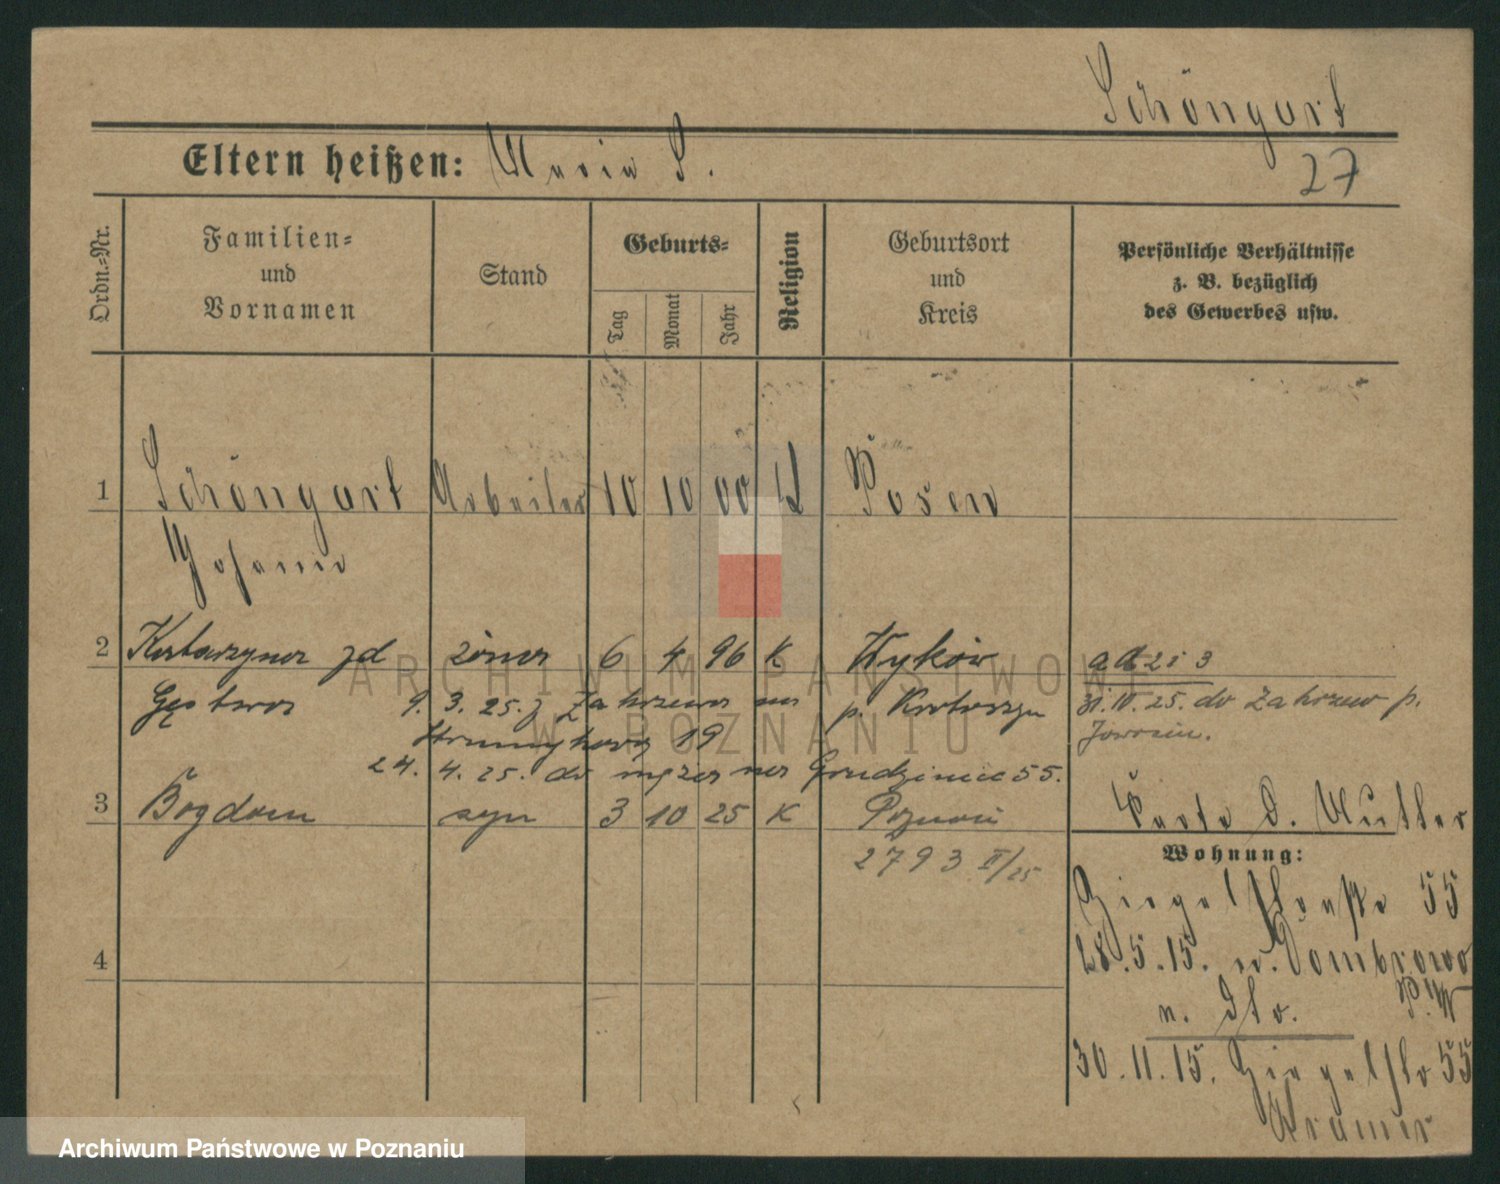 Schöngart
Eltern heißen: Maria S.
27
Ordn.=Nr.
Familien=
und
Vornamen
Stand
Geburts=
Tag
Monat
Jahr
Religion
Geburtsort
und
Kreis
Persönliche Verhältnisse
z. B. bezüglich
des Gewerbes usw.
1 Schöngart Arbeiter 10 10 00 Posen
Johann
2 Katarzyna zd żona 6 4 96 K Wyków
Gęstwa 9. 3. 25. z Zakrzewa p. Krotoszyn 31. IV. 25. do Zakrzew p.
19 Jarocin.
24. 4. 25. do męża na Grudzieniec 55.
3 Bogdan syn 3 10 25 K Poznań
2793 II/25
Karte d. Mutter
Wohnung:
Ziegelstraße 55
28.5.15. n. Dombrowo
P.W
30.11.15. Ziegelstr 55
Kramer
ARCHIWUM PAŃSTWOWE
W POZNANIU
Archiwum Państwowe w Poznaniu